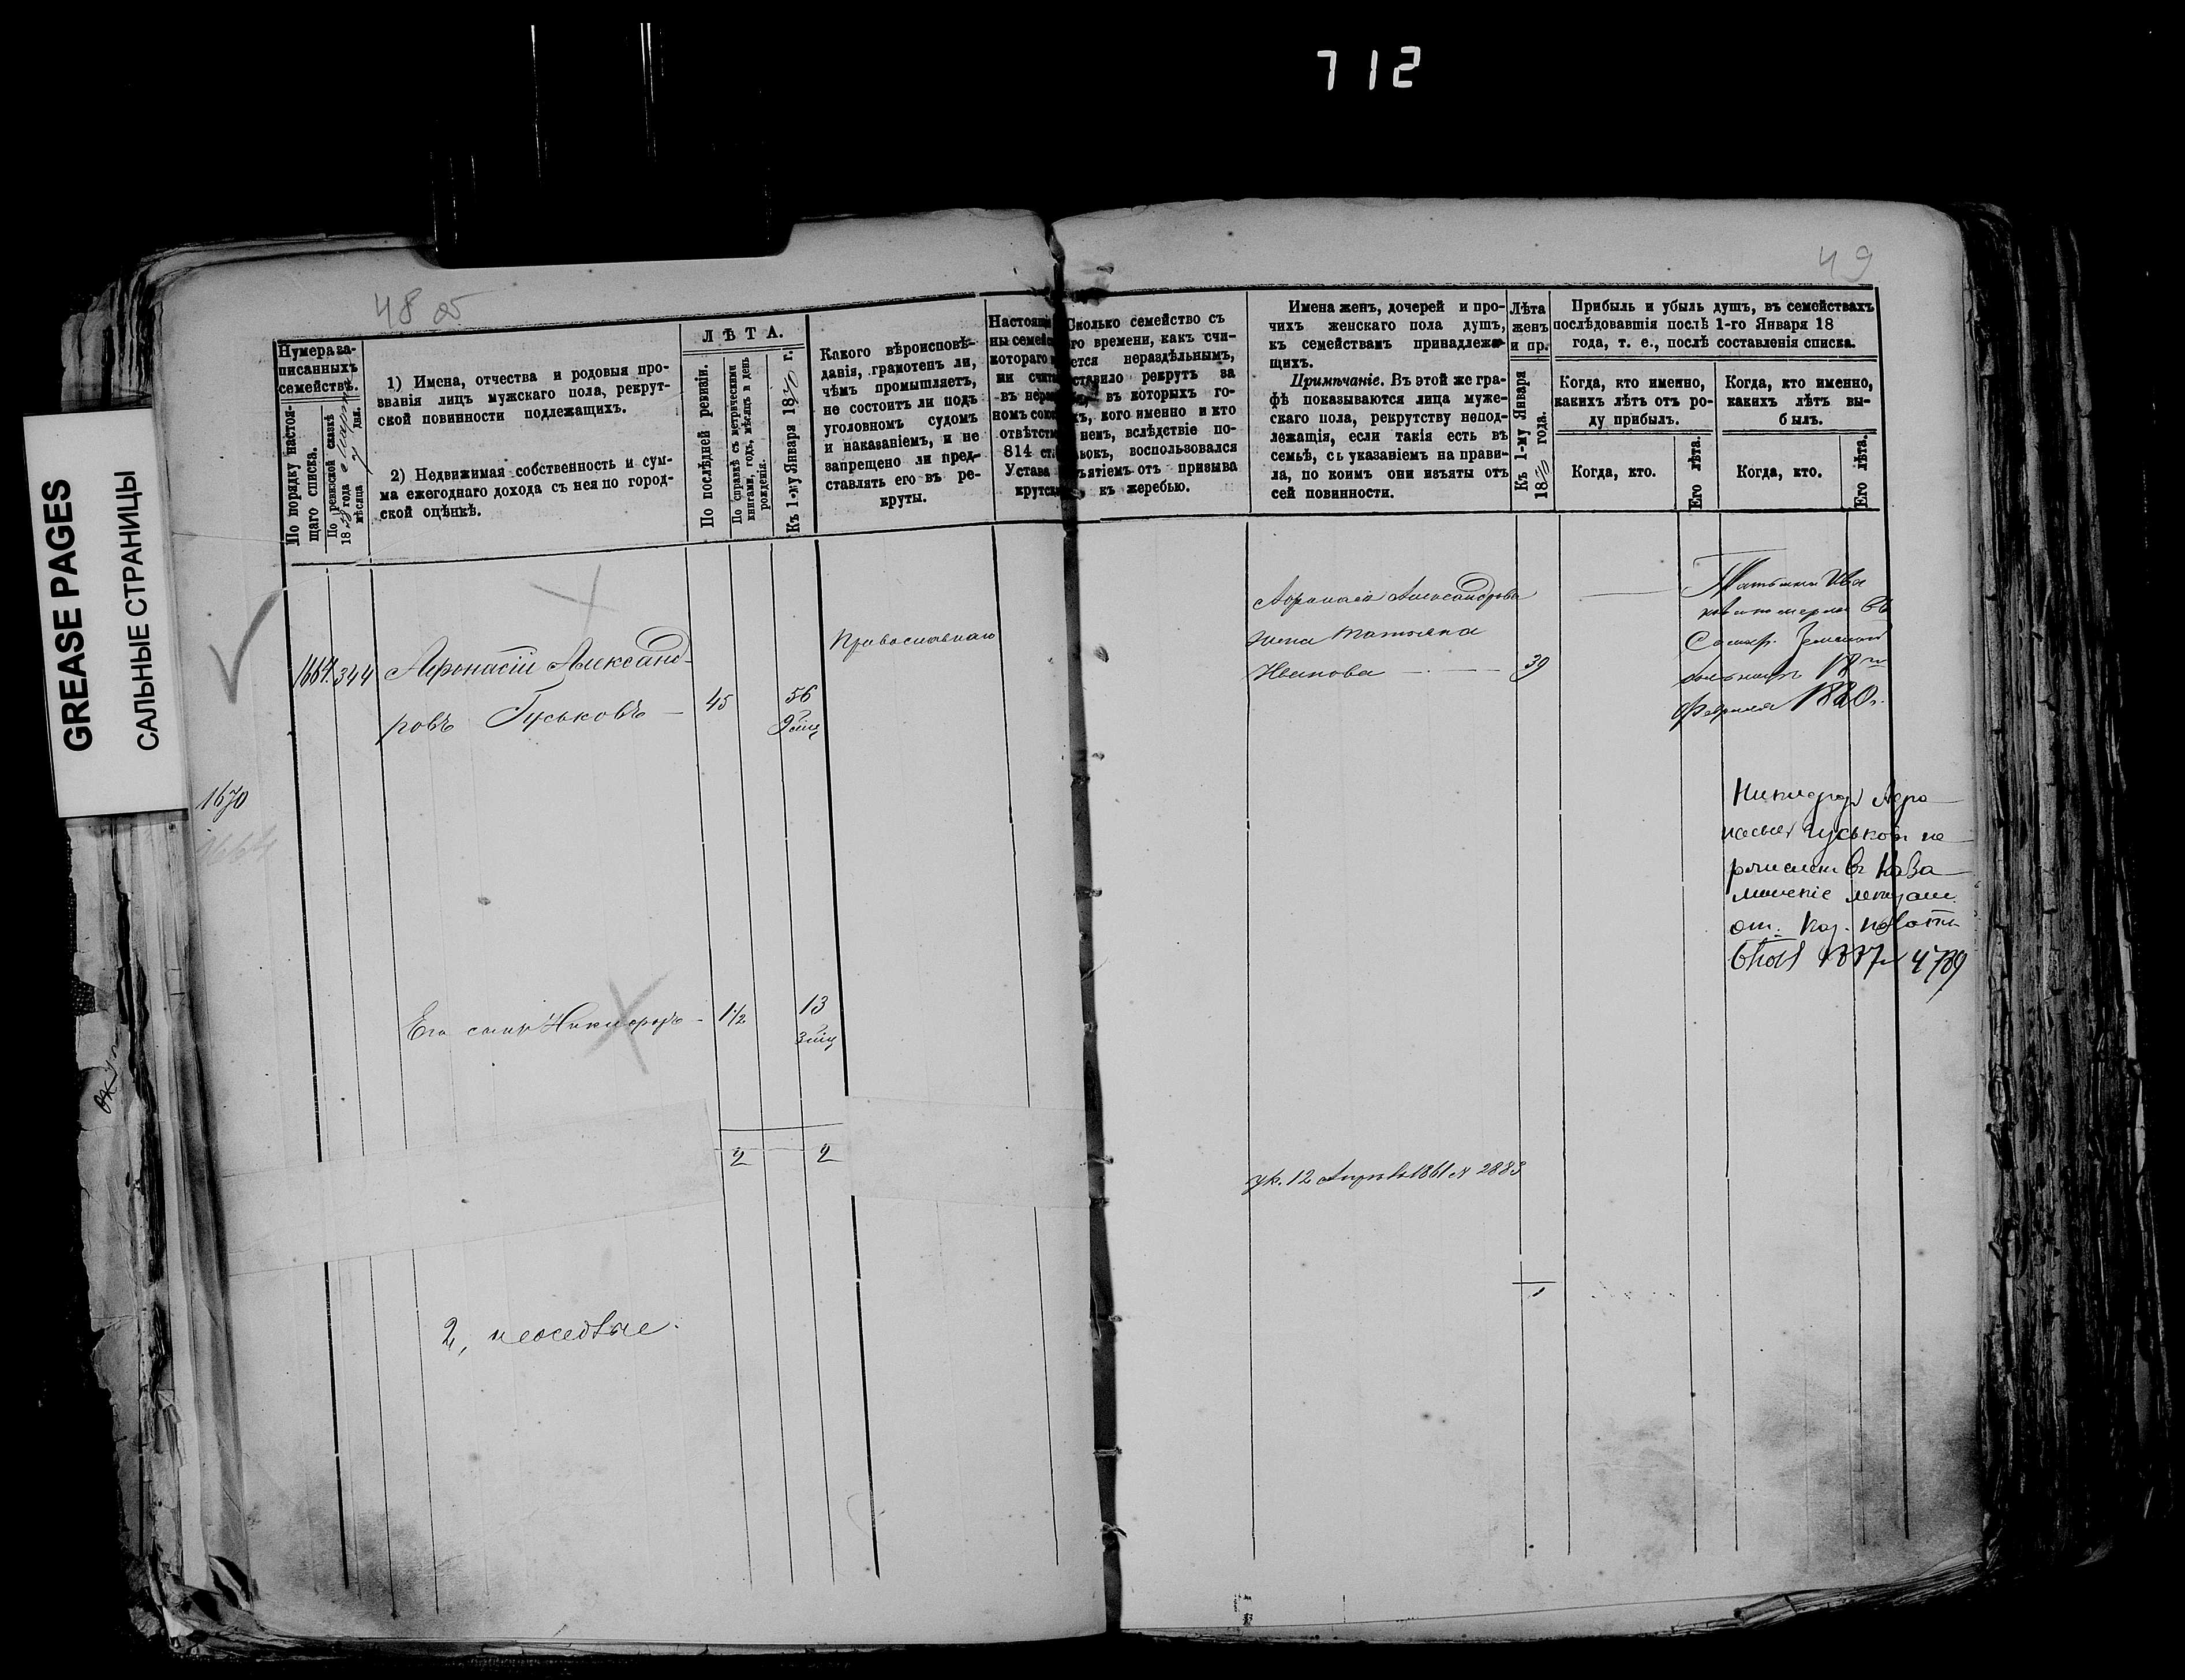 712
GREASE PAGES
САЛЬНЫЕ СТРАНИЦЫ
48 об
Нумера за-
писанныхъ
семействъ.
По порядку настоя-
щаго списка.
По ревизской сказкѣ
18 года
мѣсяца дня.
1) Имена, отчества и родовыя про-
званія лицъ мужскаго пола, рекрут-
ской повинности подлежащихъ.
2) Недвижимая собственность и сум-
ма ежегоднаго дохода съ нея по город-
ской оцѣнкѣ.
ЛѢТА.
По послѣдней ревизіи.
По справкѣ съ метрическими
книгами, годъ, мѣсяцъ и день
рожденія.
Къ 1-му Января 1870 г.
Какого вѣроисповѣ-
данія, грамотенъ ли,
чѣмъ промышляетъ,
не состоитъ ли подъ
уголовномъ судомъ
и наказаніемъ, и не
запрещено ли пред-
ставлять его въ ре-
круты.
Настоящі
ны семейс
котораго
ми счита
въ нера
номъ сою
отвѣтств
814 ст.
Устава
крутск
1664. 344 Афонасій Александ-
ровъ Гуськовъ — 45 56
9 мѣц
Православнаго
1670
1664
Его сынъ Никифоръ - 1 1/2 13
3 мѣц
2 2
2, неоседлые.
49
Сколько семейство съ
го времени, какъ счи-
ется нераздѣльнымъ,
ставило рекрутъ за
въ которыхъ го-
хъ, кого именно и кто
немъ, вслѣдствіе по-
вокъ, воспользовался
ъятіемъ отъ призыва
къ жеребью.
Имена женъ, дочерей и про-
чихъ женскаго пола душъ,
къ семействамъ принадлежа-
щихъ.
Примѣчаніе. Въ этой же гра-
фѣ показываются лица муже-
скаго пола, рекрутству непод-
лежащія, если такія есть въ
семьѣ, съ указаніемъ на прави-
ла, по коимъ они изъяты отъ
сей повинности.
Лѣта
женъ
и пр.
Къ 1-му Января
1870 года.
Прибыль и убыль душъ, въ семействахъ
послѣдовавшія послѣ 1-го Января 18
года, т. е., послѣ составленія списка.
Когда, кто именно,
какихъ лѣтъ отъ ро-
ду прибылъ.
Когда, кто именно,
какихъ лѣтъ вы-
былъ.
Когда, кто.
Его лѣта.
Когда, кто.
Его лѣта.
Афонасія Александрова
жена Татьяна
Иванова — 39
Татьяна Ива
нова померла въ
Самар. Земской
больницѣ
Февраля 1880 г.
Никифоръ Афо
насьев Гуськов пе
речислен в
от. Каз. палаты
4789
ук. 12 Апрѣля 1861 № 2883
1